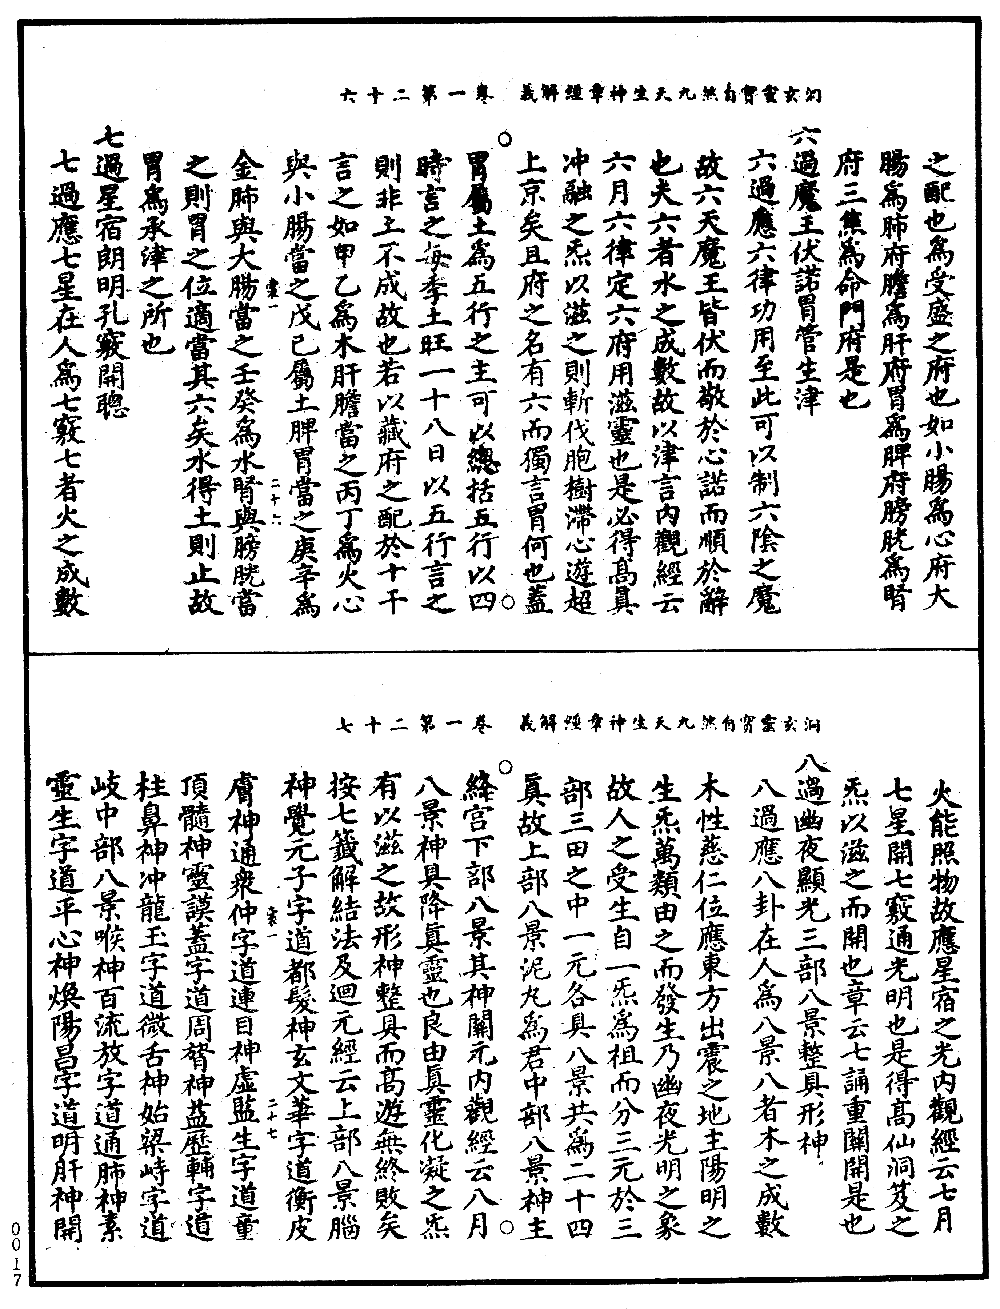 洞玄靈寶自然九天生神章經解義　卷一第二十六
之配也爲受盛之府也如小腸爲心府大
腸爲肺府膽爲肝府胃爲脾府膀胱爲腎
府三焦爲命門府是也
六過魔王伏諾胃管生津
六過應六律功用至此可以制六陰之魔
故六天魔王皆伏而敬於心諾而順於辭
也夫六者水之成數故以津言內觀經云
六月六律定六府用滋靈也是必得高眞
冲融之炁以滋之則斬伐胞樹滯心遊超
上京矣且府之名有六而獨言胃何也蓋
胃屬土爲五行之主可以總括五行以四
時言之每季土旺一十八日以五行言之
則非土不成故也若以藏府之配於十干
言之如甲乙爲木肝膽當之丙丁爲火心
與小腸當之戊己屬土脾胃當之庚辛爲
裳一　二十六
金肺與大腸當之壬癸爲水腎與膀胱當
之則胃之位適當其六矣水得土則止故
胃爲承津之所也
七過星宿朗明孔竅開聰
七過應七星在人爲七竅七者火之成數
洞玄靈寶自然九天生神章經解義　卷一第二十七
火能照物故應星宿之光內觀經云七月
七星開七竅通光明也是得高仙洞笈之
炁以滋之而開也章云七誦重關開是也
八過幽夜顯光三部八景整具形神
八過應八卦在人爲八景八者木之成數
木性慈仁位應東方出震之地主陽明之
生炁萬類由之而發生乃幽夜光明之象
故人之受生自一炁爲祖而分三元於三
部三田之中一元各具八景共爲二十四
眞故上部八景泥丸爲君中部八景神主
絳宫下部八景其神關元內觀經云八月
八景神具降眞靈也良由眞靈化凝之炁
有以滋之故形神整具而高遊無終敗矣
按七籤解結法及迴元經云上部八景腦
神覺元子字道都髮神玄文華字道衡皮
裳一　二十七
膚神通衆仲字道連目神虛監生字道童
頂髓神靈謨蓋字道周膂神益歷輔字道
柱鼻神冲龍玉字道微舌神始梁峙字道
岐中部八景喉神百流放字道通肺神素
靈生字道平心神煥陽昌字道明肝神開
0017